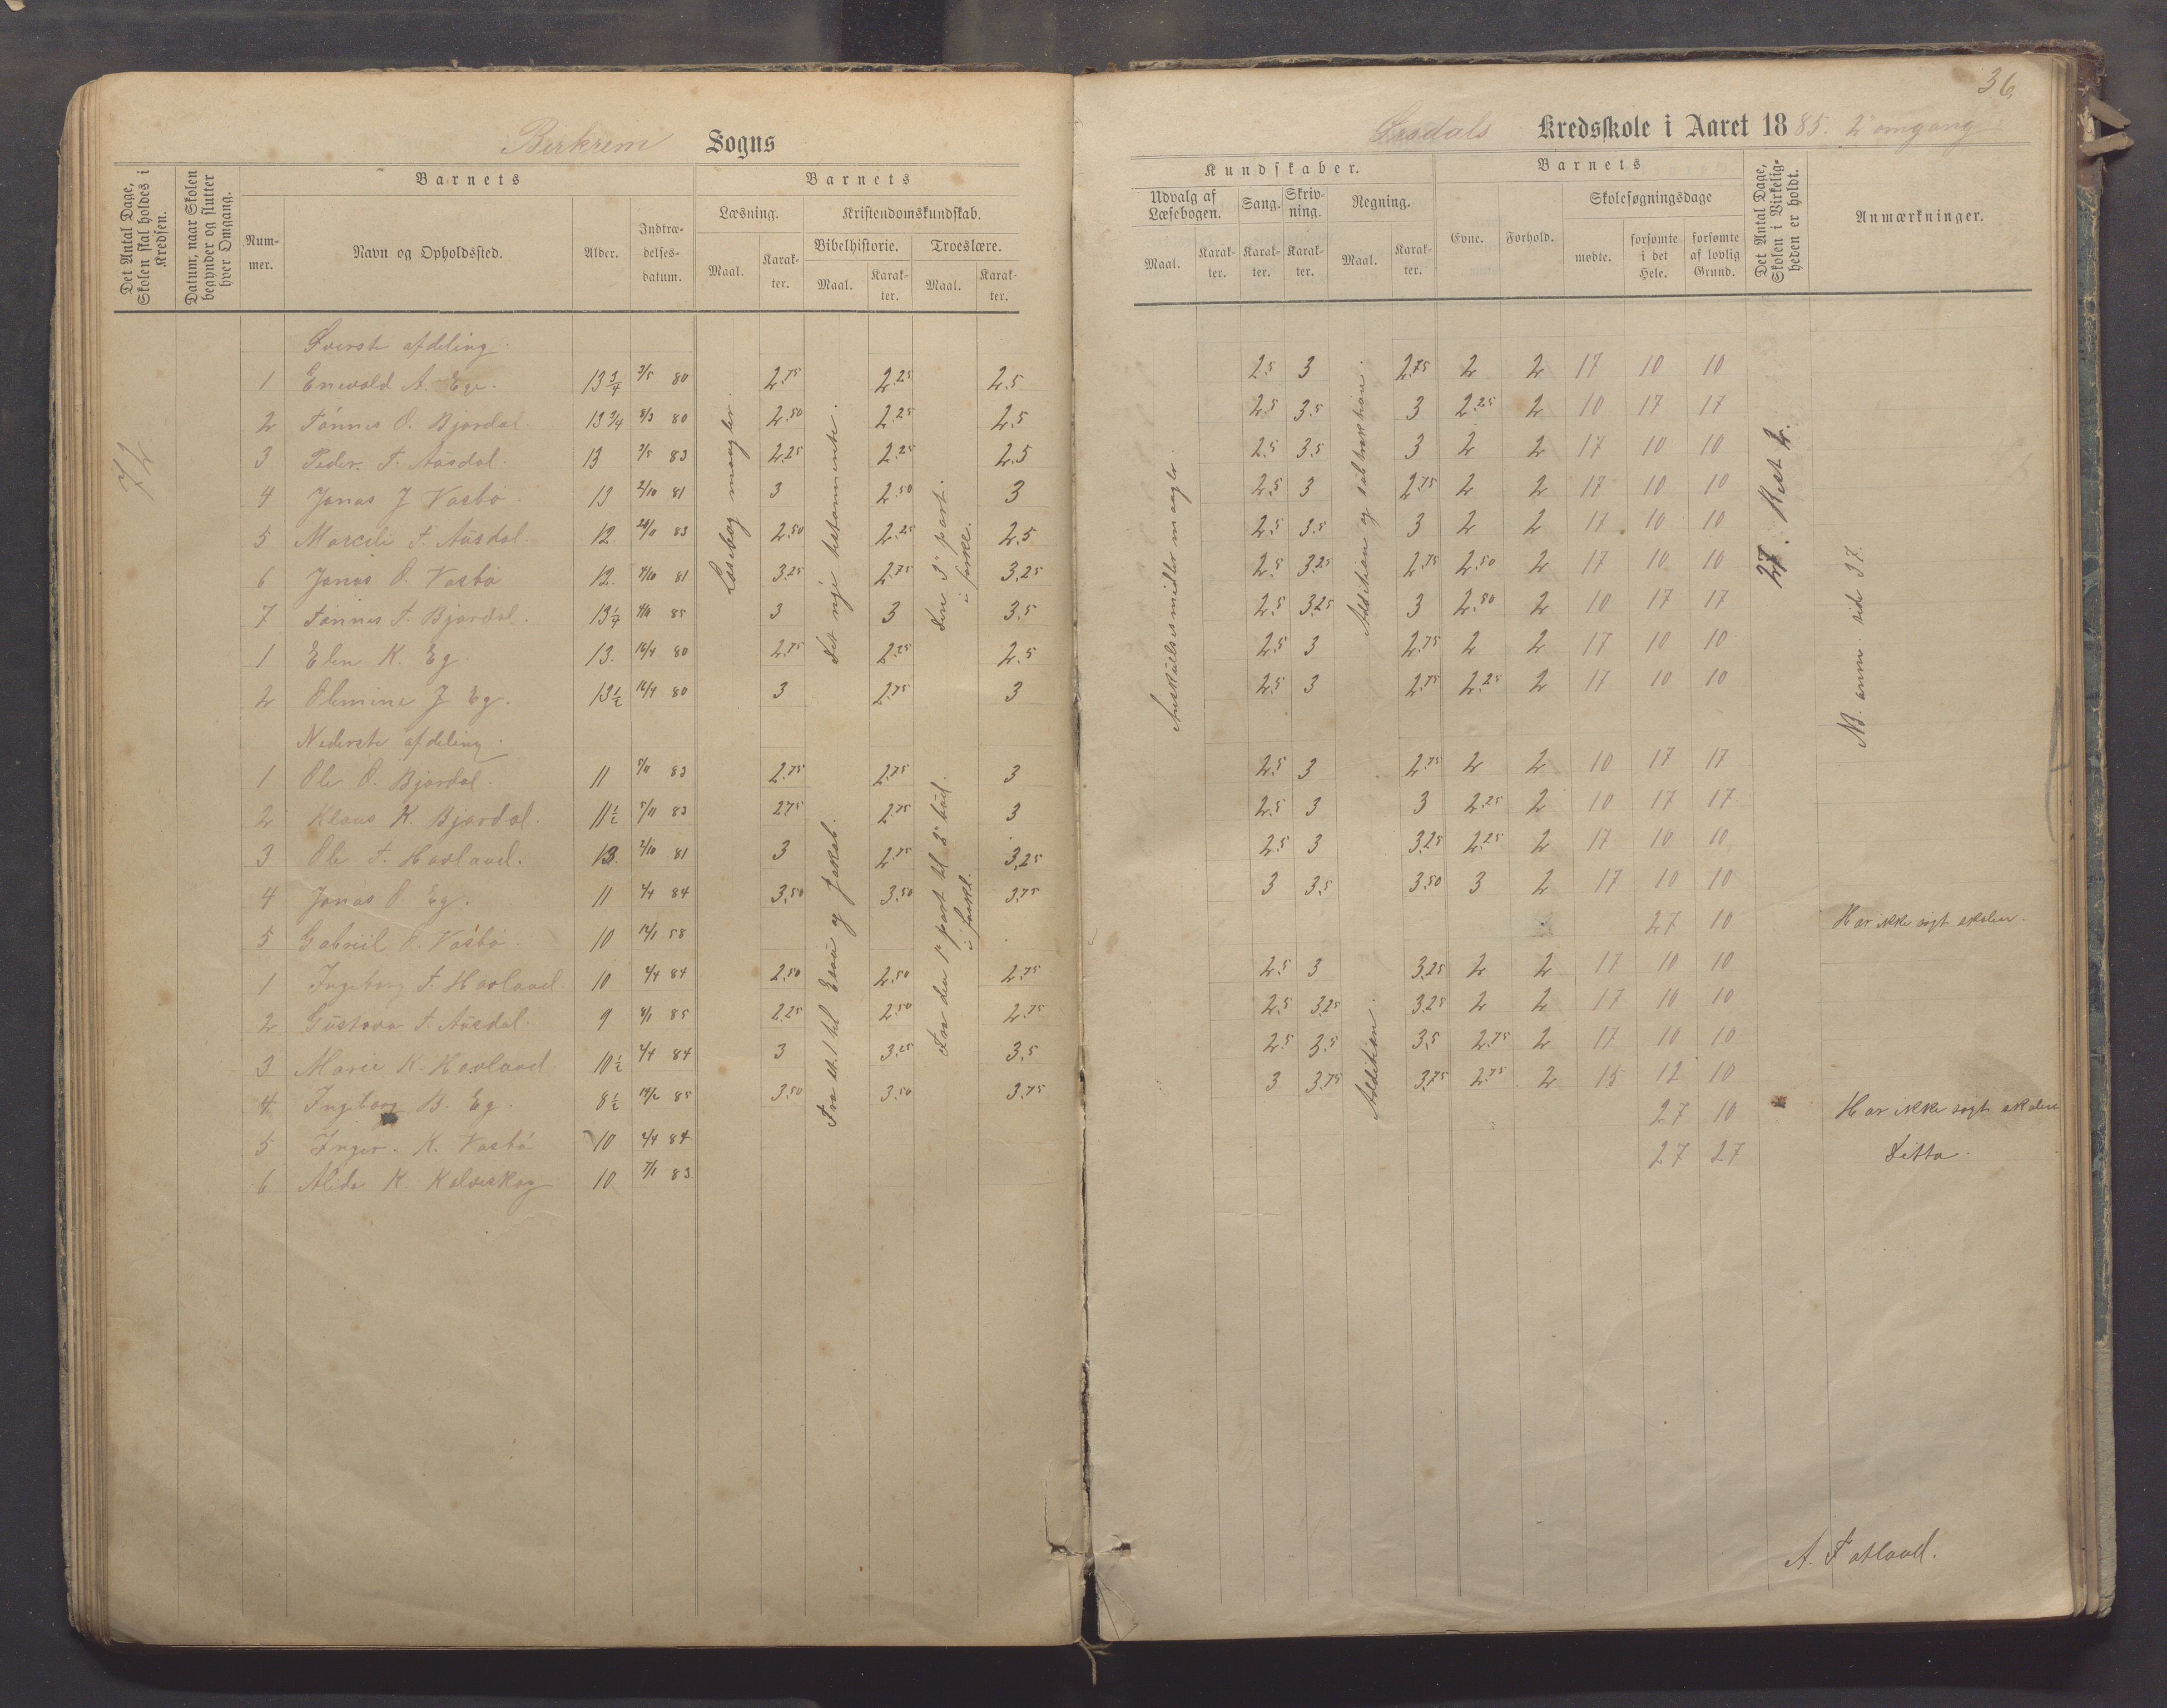 Birkrem Sogns
Det Antal Dage, Skolen skal holdes i Kredsen.
Datum, naar Skolen begynder og slutter hver Omgang.
Barnets
Barnets
Num-
mer.
Navn og Opholdssted.
Alder.
Indtræ-
delses-
datum.
Læsning.
Kristendomskundskab.
Maal.
Karak-
ter.
Bibelhistorie.
Troeslære.
Maal.
Karak-
ter.
Maal.
Karak-
ter.
72
Øverste afdeling.
1 Enevald A. Ege. 13 3/4 3/5 80 2.75 2.25 2.5
2 Tönnes O. Bjordal. 13 3/4 8/3 80 2.50 2.25 2.5
3 Peder T. Aüsdal. 13 3/5 83 2.25 2.25 2.5
4 Jonas J Vasbö. 13 2/10 81 3 2.50 3
5 T. Aüsdal. 12. 83 2.50 2.25 2.5
6 Jonas O. Vasbö 12. 81 3.25 2.75 3.25
7 Tönnes T. Bjordal. 13 85 3 3 3.5
1 Elen K. Eg. 13. 16/4 80 2.75 2.25 2.5
2 Olemine J Eg. 13 1/2 16/4 80 3 2.75 3
Nederste afdeling.
1 Ole O. Bjordal. 11 5/11 83 2.75 2.75 3
2 Klaus K. Bjordal. 11 1/2 5/11 83 2.75 2.75 3
3 Ole T. Havland. 13. 2/10 81 3 2.75 3.25
4 Jonas O. Eg. 11 2/4 84 3.50 3.50 3.75
5 Gabriil O. Vasbö 10 12/1 58
1 Ingeborg T. Havland. 10 2/4 84 2.50 2.50 2.75
2 Güstava T. Aüsdal. 9 8/1 85 2.25 2.50 2.75
3 Marie K. Havland 10 1/2 2/4 84 3 3.25 3.5
4 Ingeborg B. Eg. 8 1/2 85 3.50 3.50 3.75
5 Inger. K. Vasbö 10 2/4 84
6 Alida K. Kalveskog 10 7/1 83
Læsebog mangler.
Det nye testamente.
Den 3die part.
i forkl.
Fra st. 1 til Esaü og Jakob.
Fra den 1ste part til 3die büd.
i forkl.
36.
Örsdals Kredsskole i Aaret 1885. 2 omgang
Kundskaber.
Barnets
Det Antal Dage, Skolen i Virkelig-
heden er holdt.
Anmærkninger.
Udvalg af
Læsebogen.
Sang.
Skriv-
ning.
Regning.
Evne.
Forhold.
Skolesøgningsdage
Maal.
Karak-
ter.
Karak-
ter.
Karak-
ter.
Maal.
Karak-
ter.
mødte.
forsømte
i det
Hele.
forsømte
af lovlig
Grund.
2.5 3 2.75 2 2 17 10 10
2.5 3.5 3 2.25 2 10 17 17
2.5 3.5 3 2 2 17 10 10
2.5 3 2.75 2 2 17 10 10
2.5 3.5 3 2 2 17 10 10
2.5 3.25 2.75 2.50 2 17 10 10
2.5 3.25 3 2.50 2 10 17 17
2.5 3 2.75 2 2 17 10 10
2.5 3 2.75 2.25 2 17 10 10
2.5 3 2.75 2 2 10 17 17
2.5 3 3 2.25 2 10 17 17.
2.5 3 3.25 2.25 2 17 10 10
3 3.5 3.50 3 2 17 10 10
27 10 Har ikke sögt skolen.
2.5 3 3.25 2 2 17 10 10
2.5 3.25 3.25 2 2 17 10 10
2.5 3.5 3.5 2.75 2 17 10 10
3 3.75 3.75 2.75 2 15 12 10
27 10 Har ikke sögt skolen
27 27 Ditto.
Anskuelsesmidler mangler.
Addition og subtraktion.
Addition.
27. Rest 2.
NB. anm. side 37.
A. Fatland.